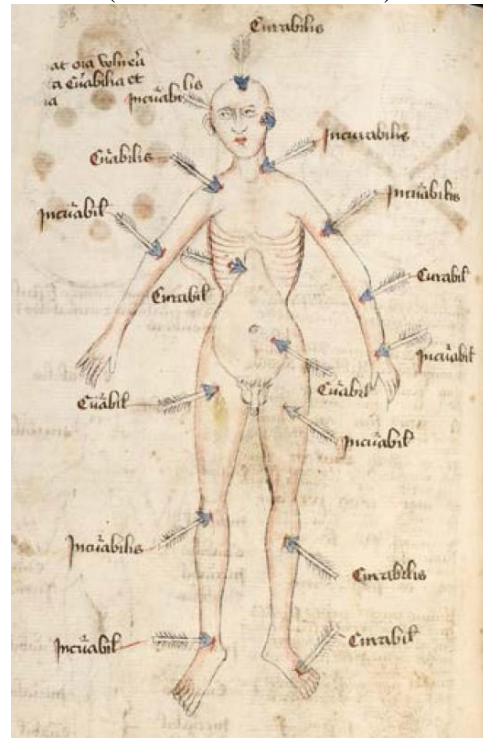 Curabilis
at ora vulnera
ta Cuabilia et
Incuabilis
Cuabilis
Incurabilis
Incuabil
Incuabilis
Curabil
Curabil
Incuabil
Cuabil
Cuabil
Incuabil
Incuabilis
Curabilis
Incuabil
Curabil